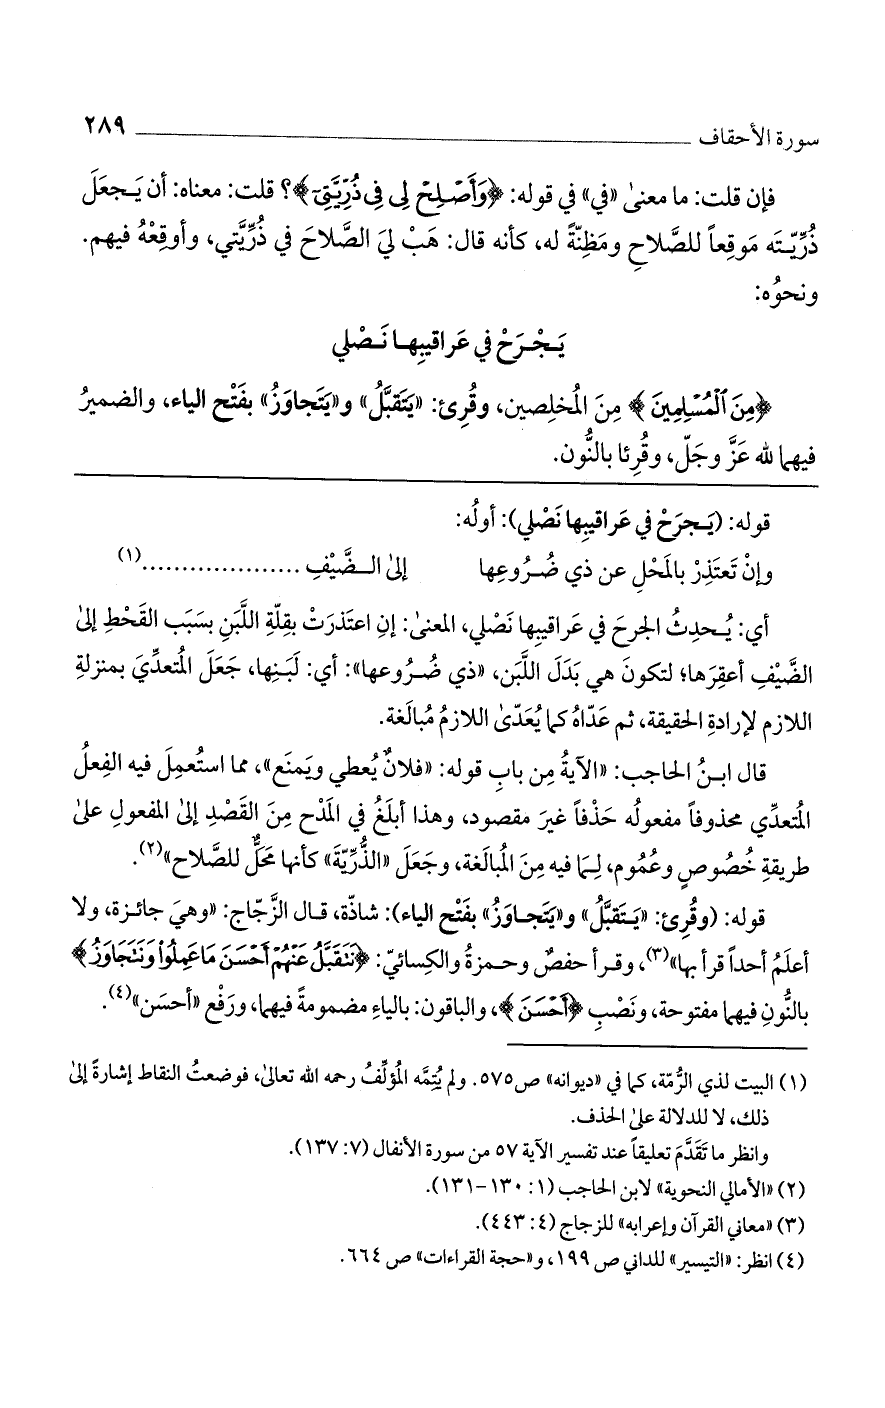 سورة الأحقاف ٢٨٩
فإن قلت: ما معنىٰ «في» في قوله: ﴿وَأَصْلِحْ لِى فِى ذُرِّيَّتِىٓ﴾؟ قلت: معناه: أن يَـجعَلَ
ذُرِّيّـتَه مَوقِعاً للصَّلاحِ ومَظِنّةً له، كأنه قال: هَبْ ليَ الصَّلاحَ في ذُرِّيَّتي، وأوقِعْهُ فيهم.
ونحوُه:
يَـجْـرَحْ في عَراقيبِهـا نَـصْلي
﴿مِنَ ٱلْمُسْلِمِينَ﴾ مِنَ المُخلِصين، وقُرِئ: «يَتَقبَّلُ» و«يَتَجاوَزُ» بفَتْح الياء، والضميرُ
فيهما لله عَزَّ وجَلّ، وقُرِئا بالنُّون.
قوله: (يَـجرَحْ في عَراقيبِها نَصْلي): أولُه:
وإنْ تَعتَذِرْ بالمَحْلِ عن ذي ضُـرُوعِها إلىٰ الـضَّيْفِ ....................(١)
أي: يُـحدِثُ الجرحَ في عَراقيبِها نَصْلي، المعنىٰ: إنِ اعتَذرَتْ بقِلّةِ اللَّبَنِ بسَبَب القَحْطِ إلىٰ
الضَّيْفِ أعقِرَها؛ لتكونَ هي بَدَلَ اللَّبَن، «ذي ضُـرُوعها»: أي: لَبَـنِها، جَعَلَ المُتعدِّيَ بمنزلةِ
اللازم لإرادةِ الحقيقة، ثم عَدّاهُ كما يُعَدّىٰ اللازمُ مُبالَغة.
قال ابـنُ الحاجب: «الآيةُ مِن بابِ قوله: «فلانٌ يُعطي ويَمنَع»، مما استُعمِلَ فيه الفِعلُ
المُتعدِّي محذوفاً مفعولُه حَذْفاً غيرَ مقصود، وهذا أبلَغُ في المَدْح مِنَ القَصْدِ إلىٰ المفعولِ علىٰ
طريقةِ خُصُوصٍ وعُمُوم، لِـمَا فيه مِنَ المُبالَغة، وجَعَلَ «الذُّرِّيّةَ» كأنها مَحَلٌّ للصَّلاح»(٢).
قوله: (وقُرِئ: «يَـتَقبَّلُ» و«يَتَجـاوَزُ» بفَتْح الياء): شاذّة، قـال الزَّجّاج: «وهيَ جائـزة، ولا
أعلَمُ أحداً قرأ بها»(٣)، وقـرأ حفصٌ وحـمزةُ والكِسائيّ: ﴿نَتَقَبَّلُ عَنْهُمْ أَحْسَنَ مَا عَمِلُوا۟ وَنَتَجَاوَزُ﴾
بالنُّونِ فيهما مفتوحة، ونَصْبِ ﴿أَحْسَنَ﴾، والباقون: بالياءِ مضمومةً فيهما، ورَفْع «أحسَن»(٤).
(١) البيت لذي الرُّمّة، كما في «ديوانه» ص٥٧٥. ولم يُتِمَّه المُؤلِّفُ رحمه الله تعالىٰ، فوضعتُ النقاط إشارةً إلىٰ
ذلك، لا للدلالة علىٰ الحذف.
وانظر ما تَقَدَّمَ تعليقاً عند تفسير الآية ٥٧ من سورة الأنفال (٧: ١٣٧).
(٢) «الأمالي النحوية» لابن الحاجب (١: ١٣٠-١٣١).
(٣) «معاني القرآن وإعرابه» للزجاج (٤: ٤٤٣).
(٤) انظر: «التيسير» للداني ص ١٩٩، و«حجة القراءات» ص ٦٦٤.